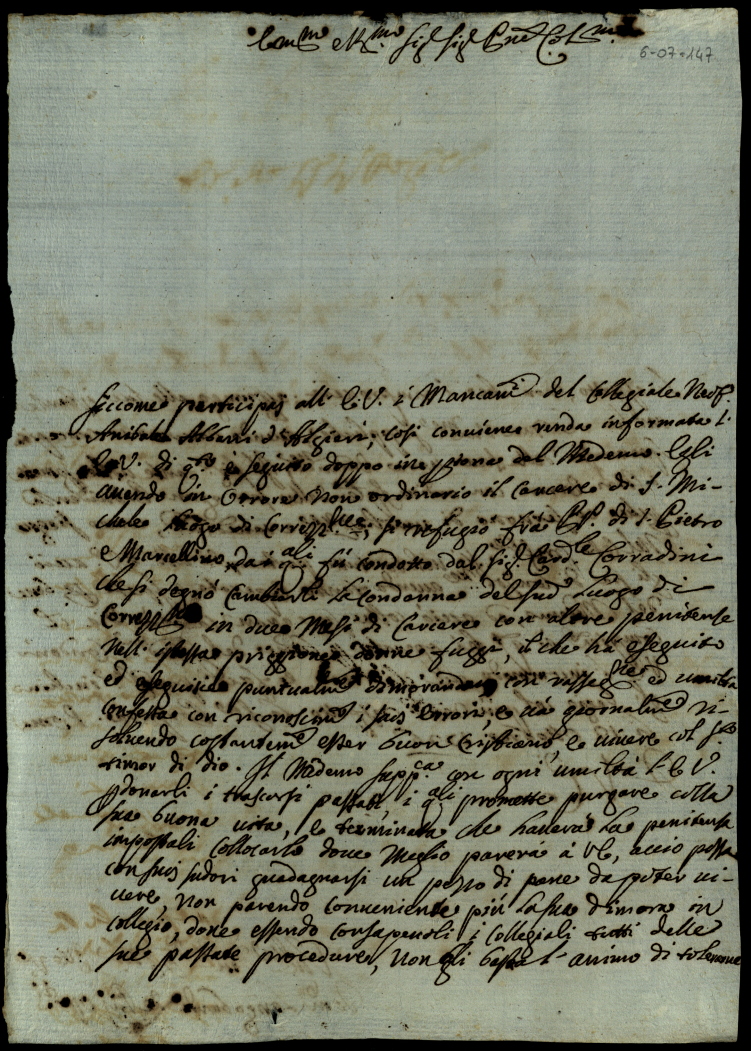 Em.mo e R.mo Sig.r Sig.r P.ne Col.mo
6-07-147
Siccome participai all' E.V. i Mancam.ti del Collegiale Neof.
Anibale Albani d'Algieri, così conviene renda informata l'
E.V. di q.to è seguito doppo del Medemo. Egli
avendo in orrore non ordinario il Carcere di S. Mi-
chele luogo di Correz.ne, si refugiò frà PP. di S. Pietro
e Marcellino, dai q.ali fù condotto dal Sig.r Card.le Corradini
che si degnò Cambiarli la condanna del sud.o luogo di
Correz.ne in due Mesi di Carcere con altre penitenze
nell' istessa priggione donne fuggì, il che hà eseguito
ed eseguisce puntualm.te dimorando con rasseg.ne ed umiltà
confessa con riconoscim.ti i suoi errori, e và giornalm.te ri-
solvendo costantem.te esser buon Cristiano e vivere col S.to
timor di Dio. Il Medemo supp.ca con ogni umiltà l' E.V.
pdonarli i trascorsi passati i q.ali promette purgare colla
sua buona vita, e terminata che haverà la penitenza
impostali Collocarlo dove meglio parerà à VE, acciò possa
con suoi sudori guadagnarsi un pezzo di pane da poter vi-
vere, non parendo conveniente più la sua dimora in
collegio, dove essendo consapevoli i Collegiali tutti delle
sue passate procedure, non gli basta l' animo di tolerarne